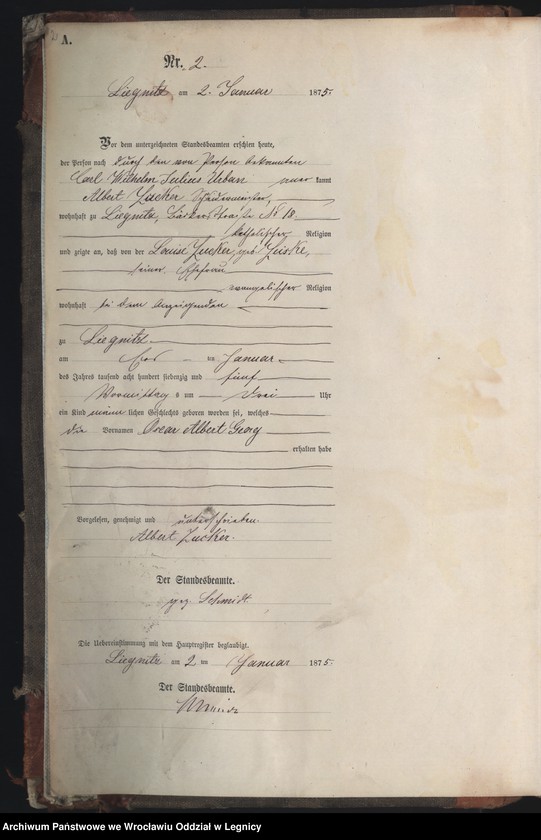 A.
Nr. 2.
Liegnitz am 2. Januar 1875.
Vor dem unterzeichneten Standesbeamten erschien heute,
der Person nach durch den von Person bekannten
Carl Wilhelm Julius Urban kannt
Albert Zucker
wohnhaft zu Liegnitz, No 18.
katholischer Religion
und zeigte an, daß von der Louise Zucker, geb Zeiske,
seiner Ehefrau
evangelischer Religion
wohnhaft bei dem Anzeigenden
zu Liegnitz
am im Januar
des Jahres tausend acht hundert siebenzig und fünf
Vormittag s um drei Uhr
ein Kind männ lichen Geschlechts geboren worden sei, welches
die Vornamen Oscar Albert Georg
erhalten habe
Vorgelesen, genehmigt und unterschrieben.
Albert Zucker.
Der Standesbeamte.
gez. Schmidt
Die Uebereinstimmung mit dem Hauptregister beglaubigt.
Liegnitz am 2 ten Januar 1875.
Der Standesbeamte.
Archiwum Państwowe we Wrocławiu Oddział w Legnicy